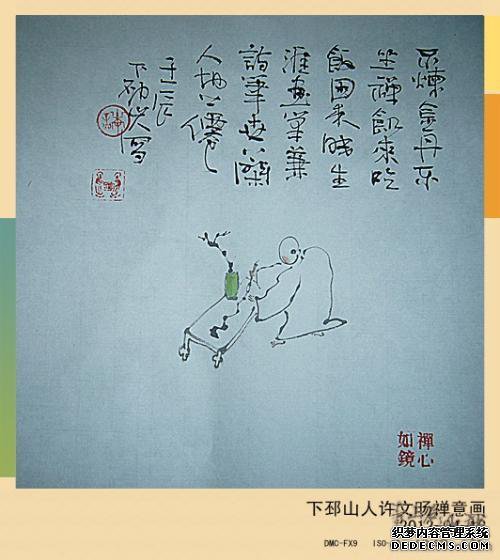 不煉金丹不
坐禪飢來吃
飯困来眠生
涯画筆兼
詩筆世上闌
人地上僊
壬辰
禪心
如鏡
下邳山人许文旸禅意画
DMC-FX9 ISO-
织梦内容管理系统
DEDECMS.COM